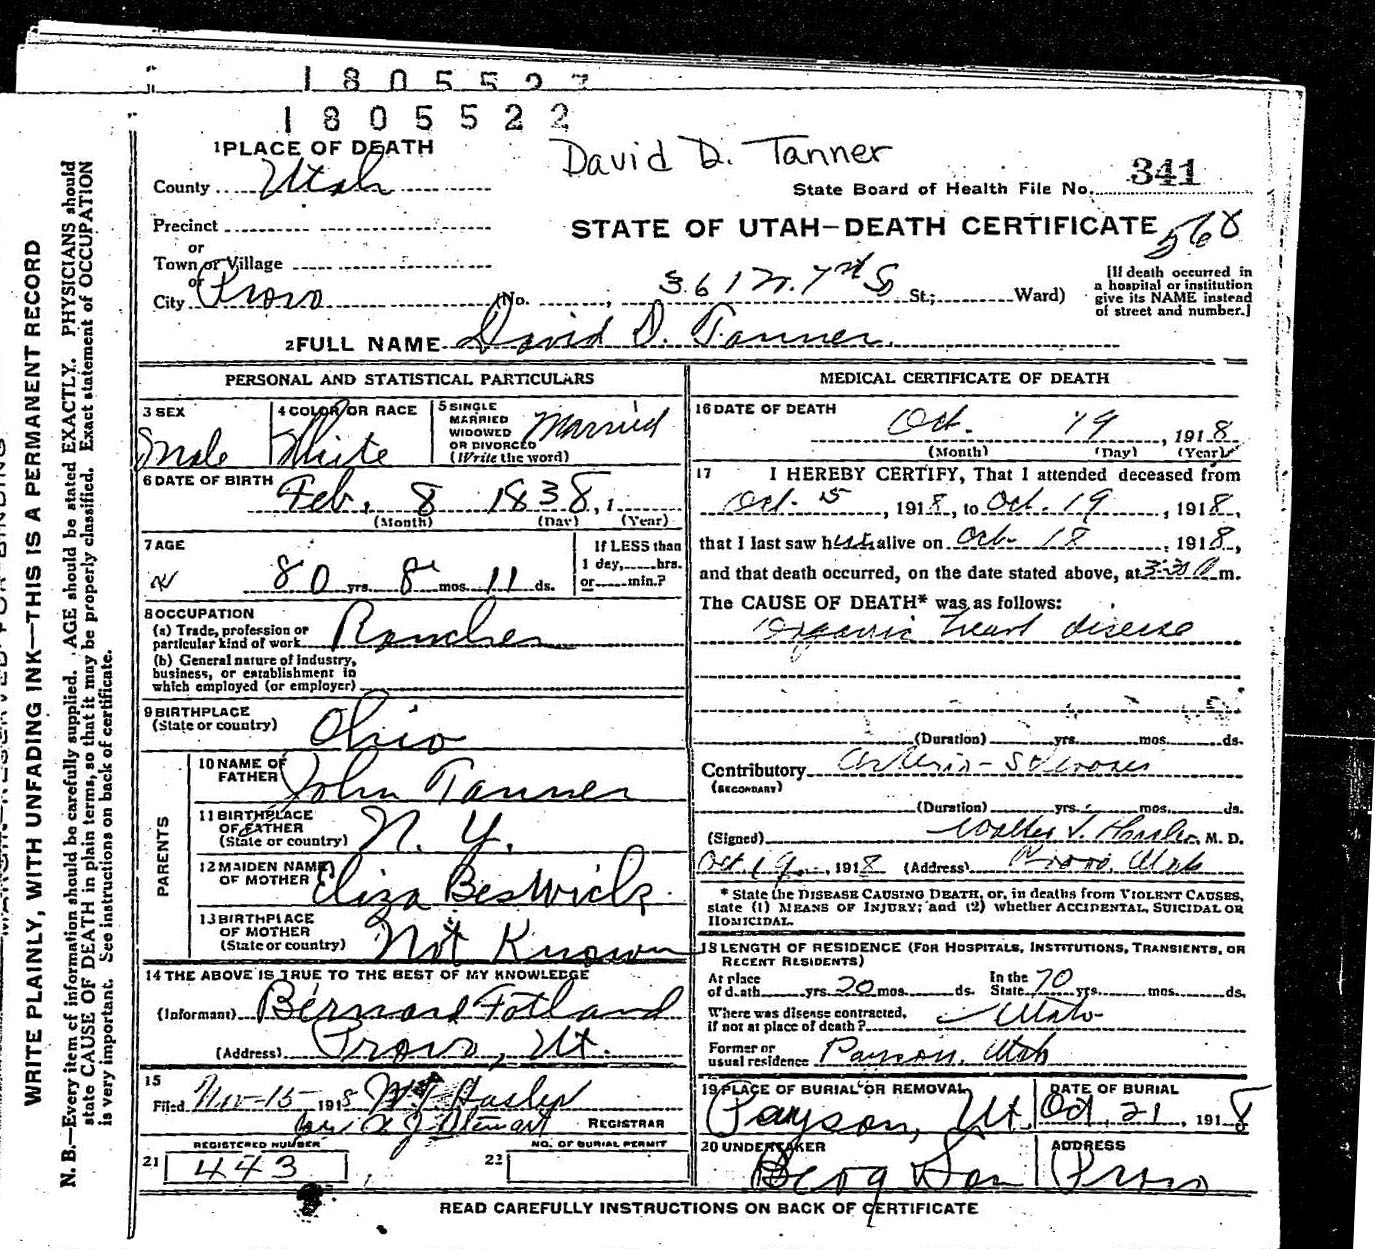 1 8 0 5 5 2
1 8 0 5 5 2 2
1 PLACE OF DEATH
David D. Tanner
County Utah
State Board of Health File No. 341
Precinct
STATE OF UTAH—DEATH CERTIFICATE
568
or
Town or Village
or
City Provo (No. , 361 N. 7th St.; Ward)
[If death occurred in
a hospital or institution
give its NAME instead
of street and number.]
2 FULL NAME David D. Tanner
PERSONAL AND STATISTICAL PARTICULARS
3 SEX
Male
4 COLOR OR RACE
White
5 SINGLE
MARRIED
WIDOWED
OR DIVORCED
(Write the word)
Married
6 DATE OF BIRTH Feb. 8 1838, 1
(Month) (Day) (Year)
7 AGE
80 yrs. 8 mos. 11 ds.
If LESS than
1 day, hrs.
or min.?
8 OCCUPATION
(a) Trade, profession or
particular kind of work Rancher
(b) General nature of industry,
business, or establishment in
which employed (or employer)
9 BIRTHPLACE
(State or country) Ohio
PARENTS
10 NAME OF
FATHER John Tanner
11 BIRTHPLACE
OF FATHER
(State or country) N. Y.
12 MAIDEN NAME
OF MOTHER Eliza Beswick
13 BIRTHPLACE
OF MOTHER
(State or country) Not Known
14 THE ABOVE IS TRUE TO THE BEST OF MY KNOWLEDGE
(Informant) Bernard Fotland
(Address) Provo, Ut.
15
Filed Nov-15- 1918 W J Hasler
A J Stewart REGISTRAR
REGISTERED NUMBER
21 443
NO. OF BURIAL PERMIT
22
MEDICAL CERTIFICATE OF DEATH
16 DATE OF DEATH
Oct. 19, 1918
(Month) (Day) (Year)
17 I HEREBY CERTIFY, That I attended deceased from
Oct. 5, 1918, to Oct. 19, 1918,
that I last saw him alive on Oct. 18, 1918,
and that death occurred, on the date stated above, at 3:30 m.
The CAUSE OF DEATH* was as follows:
Organic heart disease
(Duration) yrs. mos. ds.
Contributory Arterio-Sclerosis
(SECONDARY)
(Duration) yrs. mos. ds.
(Signed) Walter T. Hasler, M. D.
Oct 19, 1918 (Address) Provo, Utah
* State the DISEASE CAUSING DEATH, or, in deaths from VIOLENT CAUSES,
state (1) MEANS OF INJURY; and (2) whether ACCIDENTAL, SUICIDAL OR
HOMICIDAL.
18 LENGTH OF RESIDENCE (FOR HOSPITALS, INSTITUTIONS, TRANSIENTS, OR
RECENT RESIDENTS)
At place
of death yrs. 20 mos. ds.
In the
State 70 yrs. mos. ds.
Where was disease contracted,
if not at place of death? Utah
Former or
usual residence Payson, Utah
19 PLACE OF BURIAL OR REMOVAL
Payson, Ut.
DATE OF BURIAL
Oct. 21, 1918
20 UNDERTAKER
Berg & Son
ADDRESS
Provo
READ CAREFULLY INSTRUCTIONS ON BACK OF CERTIFICATE
WRITE PLAINLY, WITH UNFADING INK—THIS IS A PERMANENT RECORD
N. B.—Every item of information should be carefully supplied. AGE should be stated EXACTLY. PHYSICIANS should
state CAUSE OF DEATH in plain terms, so that it may be properly classified. Exact statement of OCCUPATION
is very important. See instructions on back of certificate.